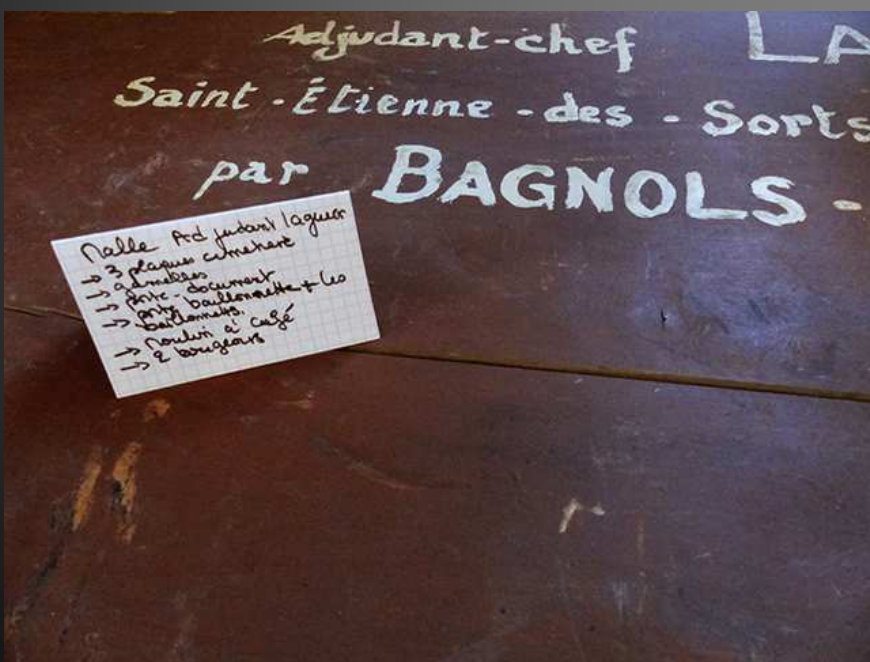 Adjudant-chef LA
Saint-Étienne-des-Sorts
par BAGNOLS-
Malle Adjudant laguer
→ 3 plaques cimetière
→ gamelles
→ porte-document
→ porte baillonnette + les
baillonnettes.
→ Moulin à café
→ 2 bougeoirs